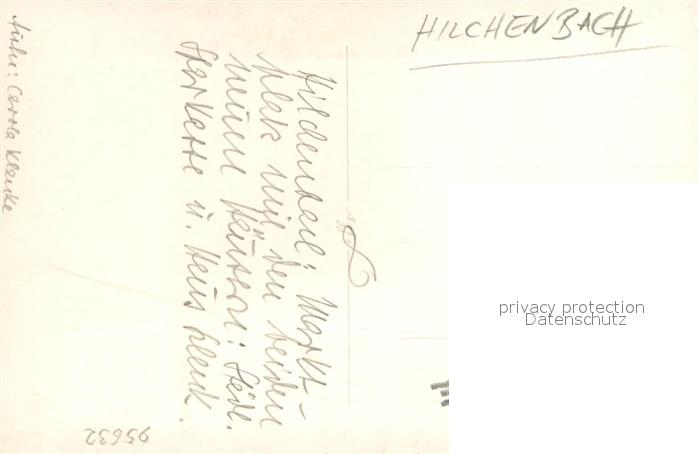 HILCHENBACH
Hilchenbach: Markt-
platz mit den beiden
neuen Häusern: Städt.
Sparkasse u. Haus Klenk.
Aufn: Carola Klenke
privacy protection
Datenschutz
95632